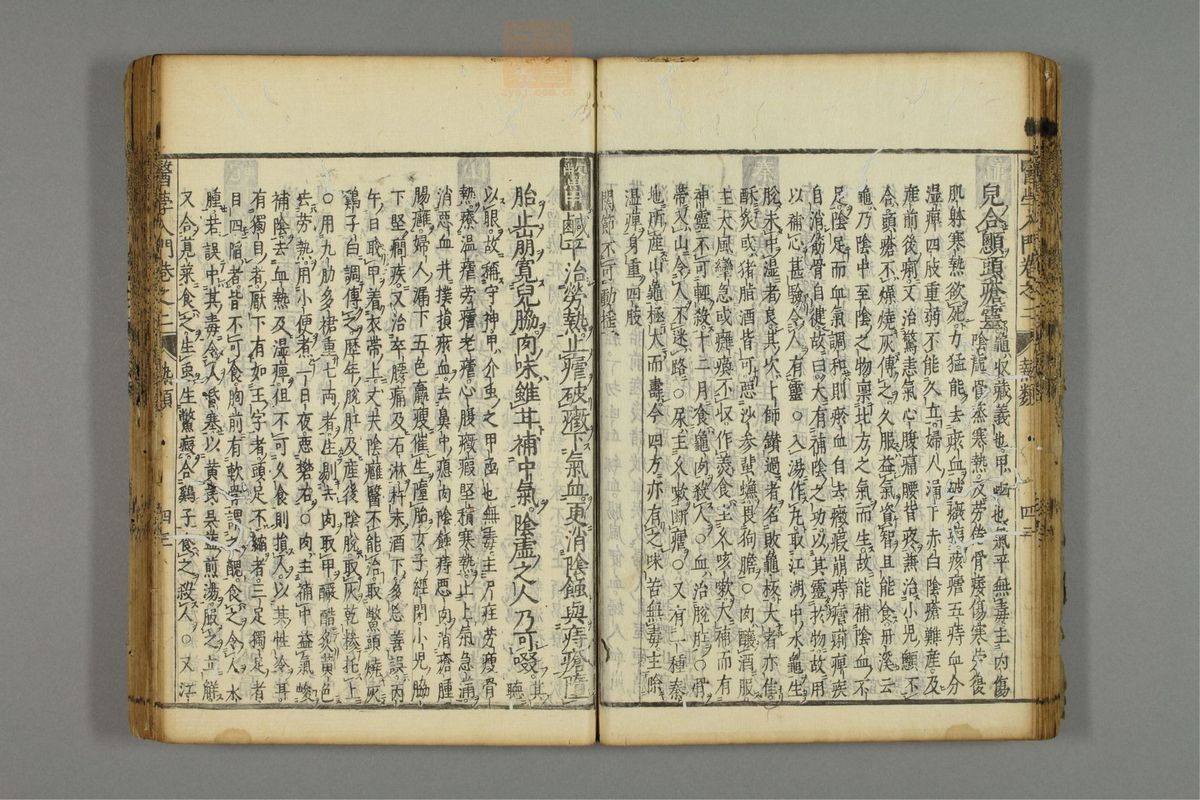 兒合顖頭瘡靈龜收藏義也甲函也氣平無毒主內傷
陰虛骨蒸寒熱及勞倦骨痿傷寒勞復
肌躰寒熱欲死力猛能去瘀血破癥瘕痎瘧五痔血分
濕痺四肢重弱不能久立婦人漏下赤白陰瘡難産及
産前後痢又治驚恚氣心腹痛腰背疼兼治小兒顖不
合頭瘡不燥燒灰傅之久服益氣資智且能食丹溪云
龜乃陰中至陰之物稟北方之氣而生故能補陰血不
足陰足而血氣調和則瘀血自去癥瘕崩痔瘧痢痺疾
自消筋骨自健故曰大有補陰之功以其靈於物故用
以補心甚驗令人有靈○入湯作丸取江湖中水龜生
脫未中濕者良其次卜師鑽過者名敗龜極大者亦佳
酥炙或猪脂酒皆可惡沙參蜚蠊畏狗膽○肉釀酒服
主大風攣急或癱瘓不收作羹食主久咳嗽大補而有
神靈不可輒殺十二月食龜肉殺人○血治脫肛○骨
帶入山令人不迷路○尿主久嗽斷瘧○又有一種秦
地所産山龜極大而壽今四方亦有之味苦無毒主除
濕痺身重四肢
關節不可動搖
鱉甲鹹平治勞熱止瘧破癥下氣血更消陰蝕與痔瘡墮
胎止崩寘兒脇肉味雖甘補中氣陰虛之人乃可啜其
聽
以眼故稱守神甲介虫之甲函也無毒主尸疰勞瘦骨
熱療温瘧去瘧老瘧心腹癥瘕堅積寒熱止上氣急滿
消惡血并撲損瘀血去鼻中瘜肉陰蝕痔惡肉消瘡腫
腸癰婦人漏下五色羸瘦催生墮胎女子經閉小兒脇
下堅稠疾又治卒腰痛及石淋杵末酒下多忘善誤丙
午日取甲着衣帶上丈夫陰癰醫不能治取鱉頭燒灰
鷄子白調傅之歷年脫肛及産後陰脫取灰乾摻托上
○用九肋多裙重七両者生剔去肉取甲釅醋炙黃色
去勞熱用小便煮一日夜惡礬石○肉主補中益氣峻
補陰去血熱及濕痺但不可久食則損人以其性冷耳
有獨目者厭下有如王字者頭足不縮者三足獨足者
目四陷者皆不可食胸前有軟骨謂之醜食之令人水
腫若誤中其毒令人昏塞以黃芪吳藍煎湯服之立解
又合莧菜食之生虫生鱉癥合鷄子食之殺人○又浮
醫學入門卷之二
熱類
四三